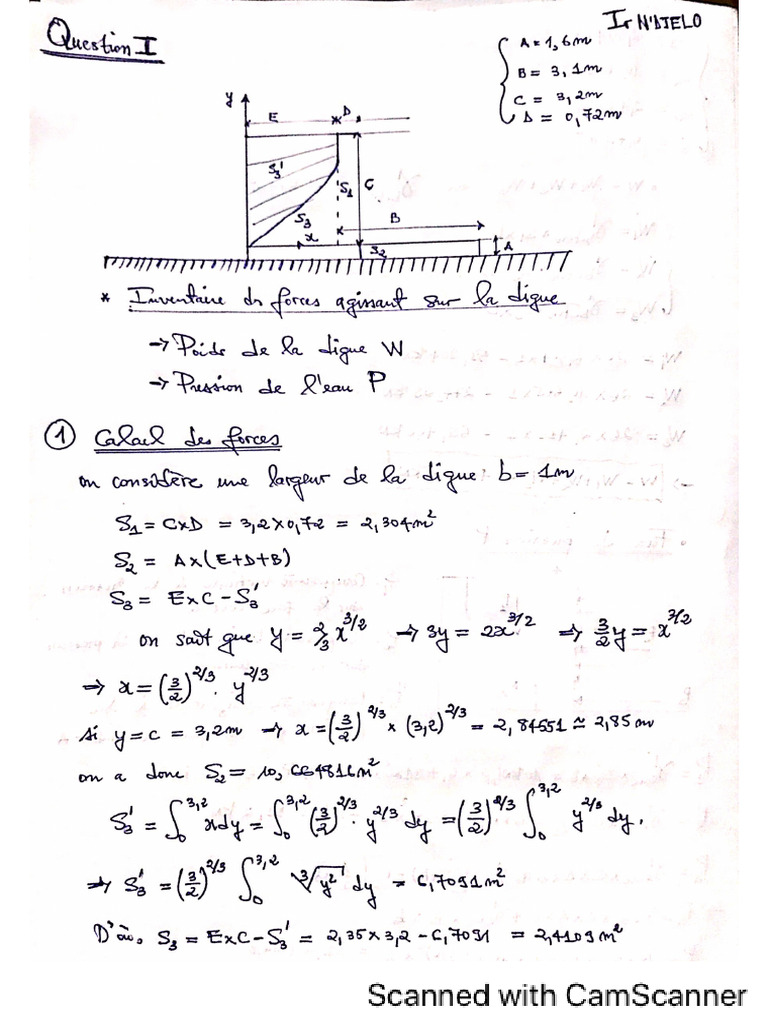 Ir N'DJELO
Question I
A = 1,6m
B = 3,1m
C = 3,2m
D = 0,72m
y
E
D
S₃'
S₁
C
S₃
B
x
S₂
A
* Inventaire des forces agissant sur la digue
→ Poids de la digue W
→ Pression de l'eau P
① Calcul des forces
on considère une largeur de la digue b = 1m
S₁ = C×D = 3,2×0,72 = 2,304m²
S₂ = A×(E+D+B)
S₃ = E×C - S₃'
on sait que y = 2/3 x^3/2 → 3y = 2x^3/2 → 3/2 y = x^3/2
→ x = (3/2)^2/3 · y^2/3
si y = C = 3,2m → x = (3/2)^2/3 × (3,2)^2/3 = 2,84551 ≃ 2,85 m
on a donc S₂ = 10,664816m²
S₃' = ∫₀^3,2 xdy = ∫₀^3,2 (3/2)^2/3 · y^2/3 dy = (3/2)^2/3 ∫₀^3,2 y^2/3 dy.
→ S₃' = (3/2)^2/3 ∫₀^3,2 ∛y² dy = 6,7091m²
D'où. S₃ = E×C - S₃' = 2,35×3,2 - 6,7091 = 2,4109m²
Scanned with CamScanner